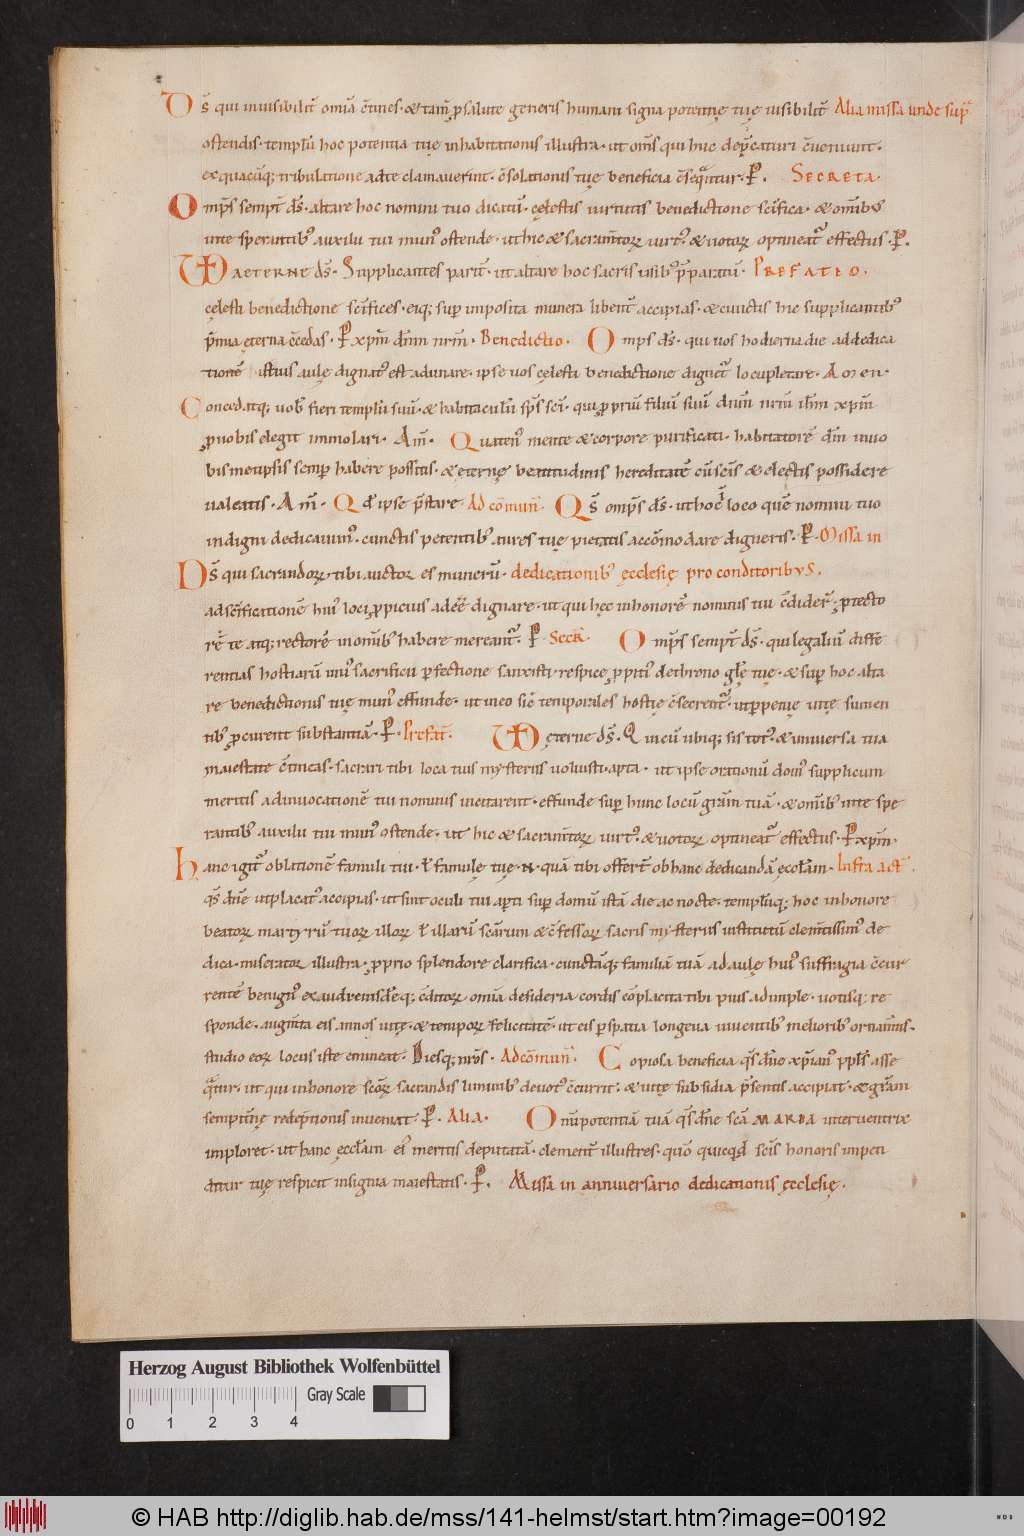 Ds̄ qui inuisibilit̄ om̄ia c̄tines · & tam̄ ꝓ salute generis humani signa potentię tuę uisibilit̄ Alia missa unde sup̄
ostendis · templū hoc potentia tuę inhabitationis illustra · ut om̄s qui huc dep̄caturi c̄ueniunt ·
ex quacūq; tribulatione ad te clamauerint · c̄solationis tuę beneficia c̄sequant᷑ · P̄ · SECRETA ·
Omp̄s sempit̄ ds̄ · altare hoc nomini tuo dicatū · cęlestis uirtutis benedictione sc̄ifica · & om̄ibus
in te sperantib; auxilii tui mun᷒ ostende · ut hic & sacram̄torꝝ uirt᷒ · & uotorꝝ optineat᷑ effectus · P̄ ·
VD AETERNE ds̄ · Supplicantes parit̄ · ut altare hoc sacris usib; p̄paratū · PREFATIO ·
cęlesti benedictione sc̄ifices · eiq; sup̄ imposita munera libent̄ accipias · & cunctis hic supplicantib;
p̄mia ęterna c̄cedas · P̄ xp̄m dn̄m nr̄m · Benedictio · Omps ds̄ · qui uos hodierna die ad dedica
tionē istius aulę dignat᷒ est adunare · ipse uos cęlesti benedictione dignet᷑ locupletare · Amen ·
Concedatq; uob̄ fieri templū suū · & habitaculū sp̄s sc̄i · qui ꝓpriū filiū suū dn̄m nr̄m ih̄m xp̄m
ꝓ nobis elegit immolari · Am̄ · Quaten᷒ mente & corpore purificati · habitatorē dm̄ in uo
bismetipsis semp̄ habere possitis · & ęternę beatitudinis hereditatē cū sc̄is & electis possidere
ualeatis · Am̄ · Qd̄ ipse p̄stare · Ad cōmun̄ · Qs̄ omps̄ ds̄ · ut hoc ī loco quē nomini tuo
indigni dedicauim᷒ · cunctis petentib; aures tuę pietatis accōmodare digneris · P̄ · Missa in
Ds̄ qui sacrandorꝝ tibi auctor es munerū · dedicationib; ęcclesię pro conditoribus ·
ad sc̄ificationē hui᷒ loci ꝓpicius adēē dignare · ut qui hęc in honorē nominis tui c̄dider̄ · ꝓtecto
rē te atq; rectorē in om̄ib; habere mereant᷑ · P̄ · Secr̄ · Omp̄s sempit̄ ds̄ · qui legaliū diffe
rentias hostiarū uni᷒ sacrificii ꝑfectione sanxisti · respice ꝓpiti᷒ de throno gl̄ę tuę · & sup̄ hoc alta
re benedictionis tuę mun᷒ effunde · ut in eo sic̄ temporales hostię c̄secrent᷑ · ut ꝑpetuę uitę sumen
tib; ꝓcurent substantiā · P̄ · Prefat̄ · VD ęterne ds̄ · Qui cū ubiq; sis tot᷒ · & uniuersa tua
maiestate c̄tineas · sacrari tibi loca tuis mysteriis uoluisti apta · ut ipse orationū dom᷒ supplicum
mentis ad inuocationē tui nominis incitarent · effunde sup̄ hunc locū grām tuā · & om̄ib; in te spe
rantib; auxilii tui mun᷒ ostende · ut hic & sacram̄torꝝ uirt᷒ · & uotorꝝ optineat᷑ effectus · P̄ xp̄m ·
Hanc igit᷑ oblationē famuli tui · ł famulę tuę · N · quā tibi offert̄ ob hanc dedicandā ęccl̄am · Infra act̄ ·
qs̄ dn̄e ut placat᷒ accipias · ut sint oculi tui aꝑti sup̄ domū istā die ac nocte · templūq; hoc in honore
beatorꝝ martyrū tuorꝝ illorꝝ ł illarū sc̄arum & c̄fessorꝝ sacris mysteriis institutū clem̄tissim᷒ de
dica · miserator illustra · ꝓprio splendore clarifica · cunctāq; familiā tuā ad aulę hui᷒ suffragia c̄cur
rentē benign᷒ exaudire c̄ditorꝝ om̄ia desideria cordis cōplacita tibi pius adimple · uotisq; re
sponde · augm̄ta eis annos uitę · & temporꝝ felicitatē · ut eis ꝑ spatia longeua uiuentib; meliorib; ornam̄tis ·
studio eorꝝ locus iste emineat · Diesq; nr̄os · Ad cōmun̄ · Copiosa beneficia qs̄ dn̄e xp̄ian᷒ ppl̄s asse
quat᷑ · ut qui in honore sc̄orꝝ sacrandis liminib; deuot᷒ c̄currit · & uitę subsidia p̄sentis accipiat · & grām
sempit̄nę redēptionis inueniat · P̄ · Alia · Om̄ipotentiā tuā qs̄ dn̄e sc̄a MARIA interuentrix
imploret · ut hanc ęccl̄am ei᷒ meritis deputatā · clement̄ illustres · quō quicqd̄ sc̄is honoris impen
ditur tuę respicit insignia maiestatis · P̄ · Missa in anniuersario dedicationis ęcclesię ·
Herzog August Bibliothek Wolfenbüttel
Gray Scale
0 1 2 3 4
© HAB http://diglib.hab.de/mss/141-helmst/start.htm?image=00192